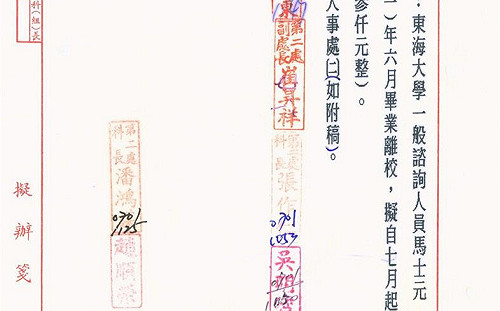 ：東海大學一般諮詢人員馬士元
）年六月畢業離校，擬自七月起
參仟元整）。
人事處㈡如附稿）。
東
第二處
副處長崔昇祥
第二處
科長張作
0701
1053
吳
0701
1050
第二處
科長潘鴻
0701
1125
趙順榮
科（組）長
擬辦箋